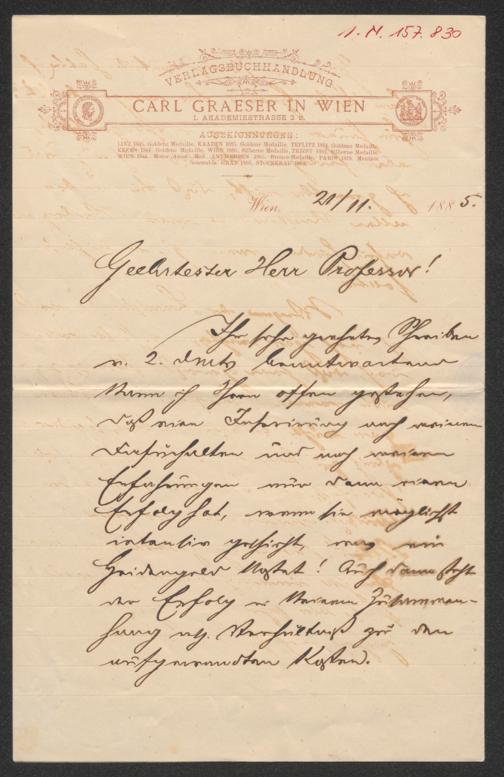 1. N. 157.830
VERLAGSBUCHHANDLUNG
CARL GRAESER IN WIEN
I. AKADEMIESTRASSE 2 B.
AUSZEICHNUNGEN:
Wien, 21/11. 1885.
Geehrtester Herr Professor!
Ihr sehr geehrtes Schreiben
v. 2. dmts beantwortend
kann ich Ihnen offen gestehen,
daß eine Inserirung nach meinem
Dafürhalten und nach meinen
Erfahrungen nur dann einen
Erfolg hat, wenn sie möglichst
intensiv geschieht, was ein
Heidengeld kostet! Auch dann steht
der Erfolg in keinem Zusammen-
hang resp. Verhältniß zu den
aufgewandten Kosten.